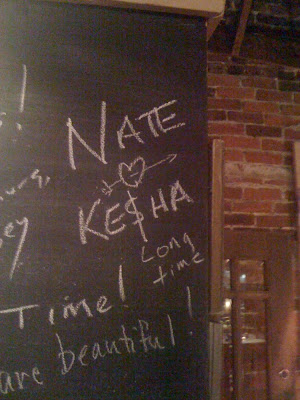 NATE
KE$HA
Long
time
Time!
are beautiful!